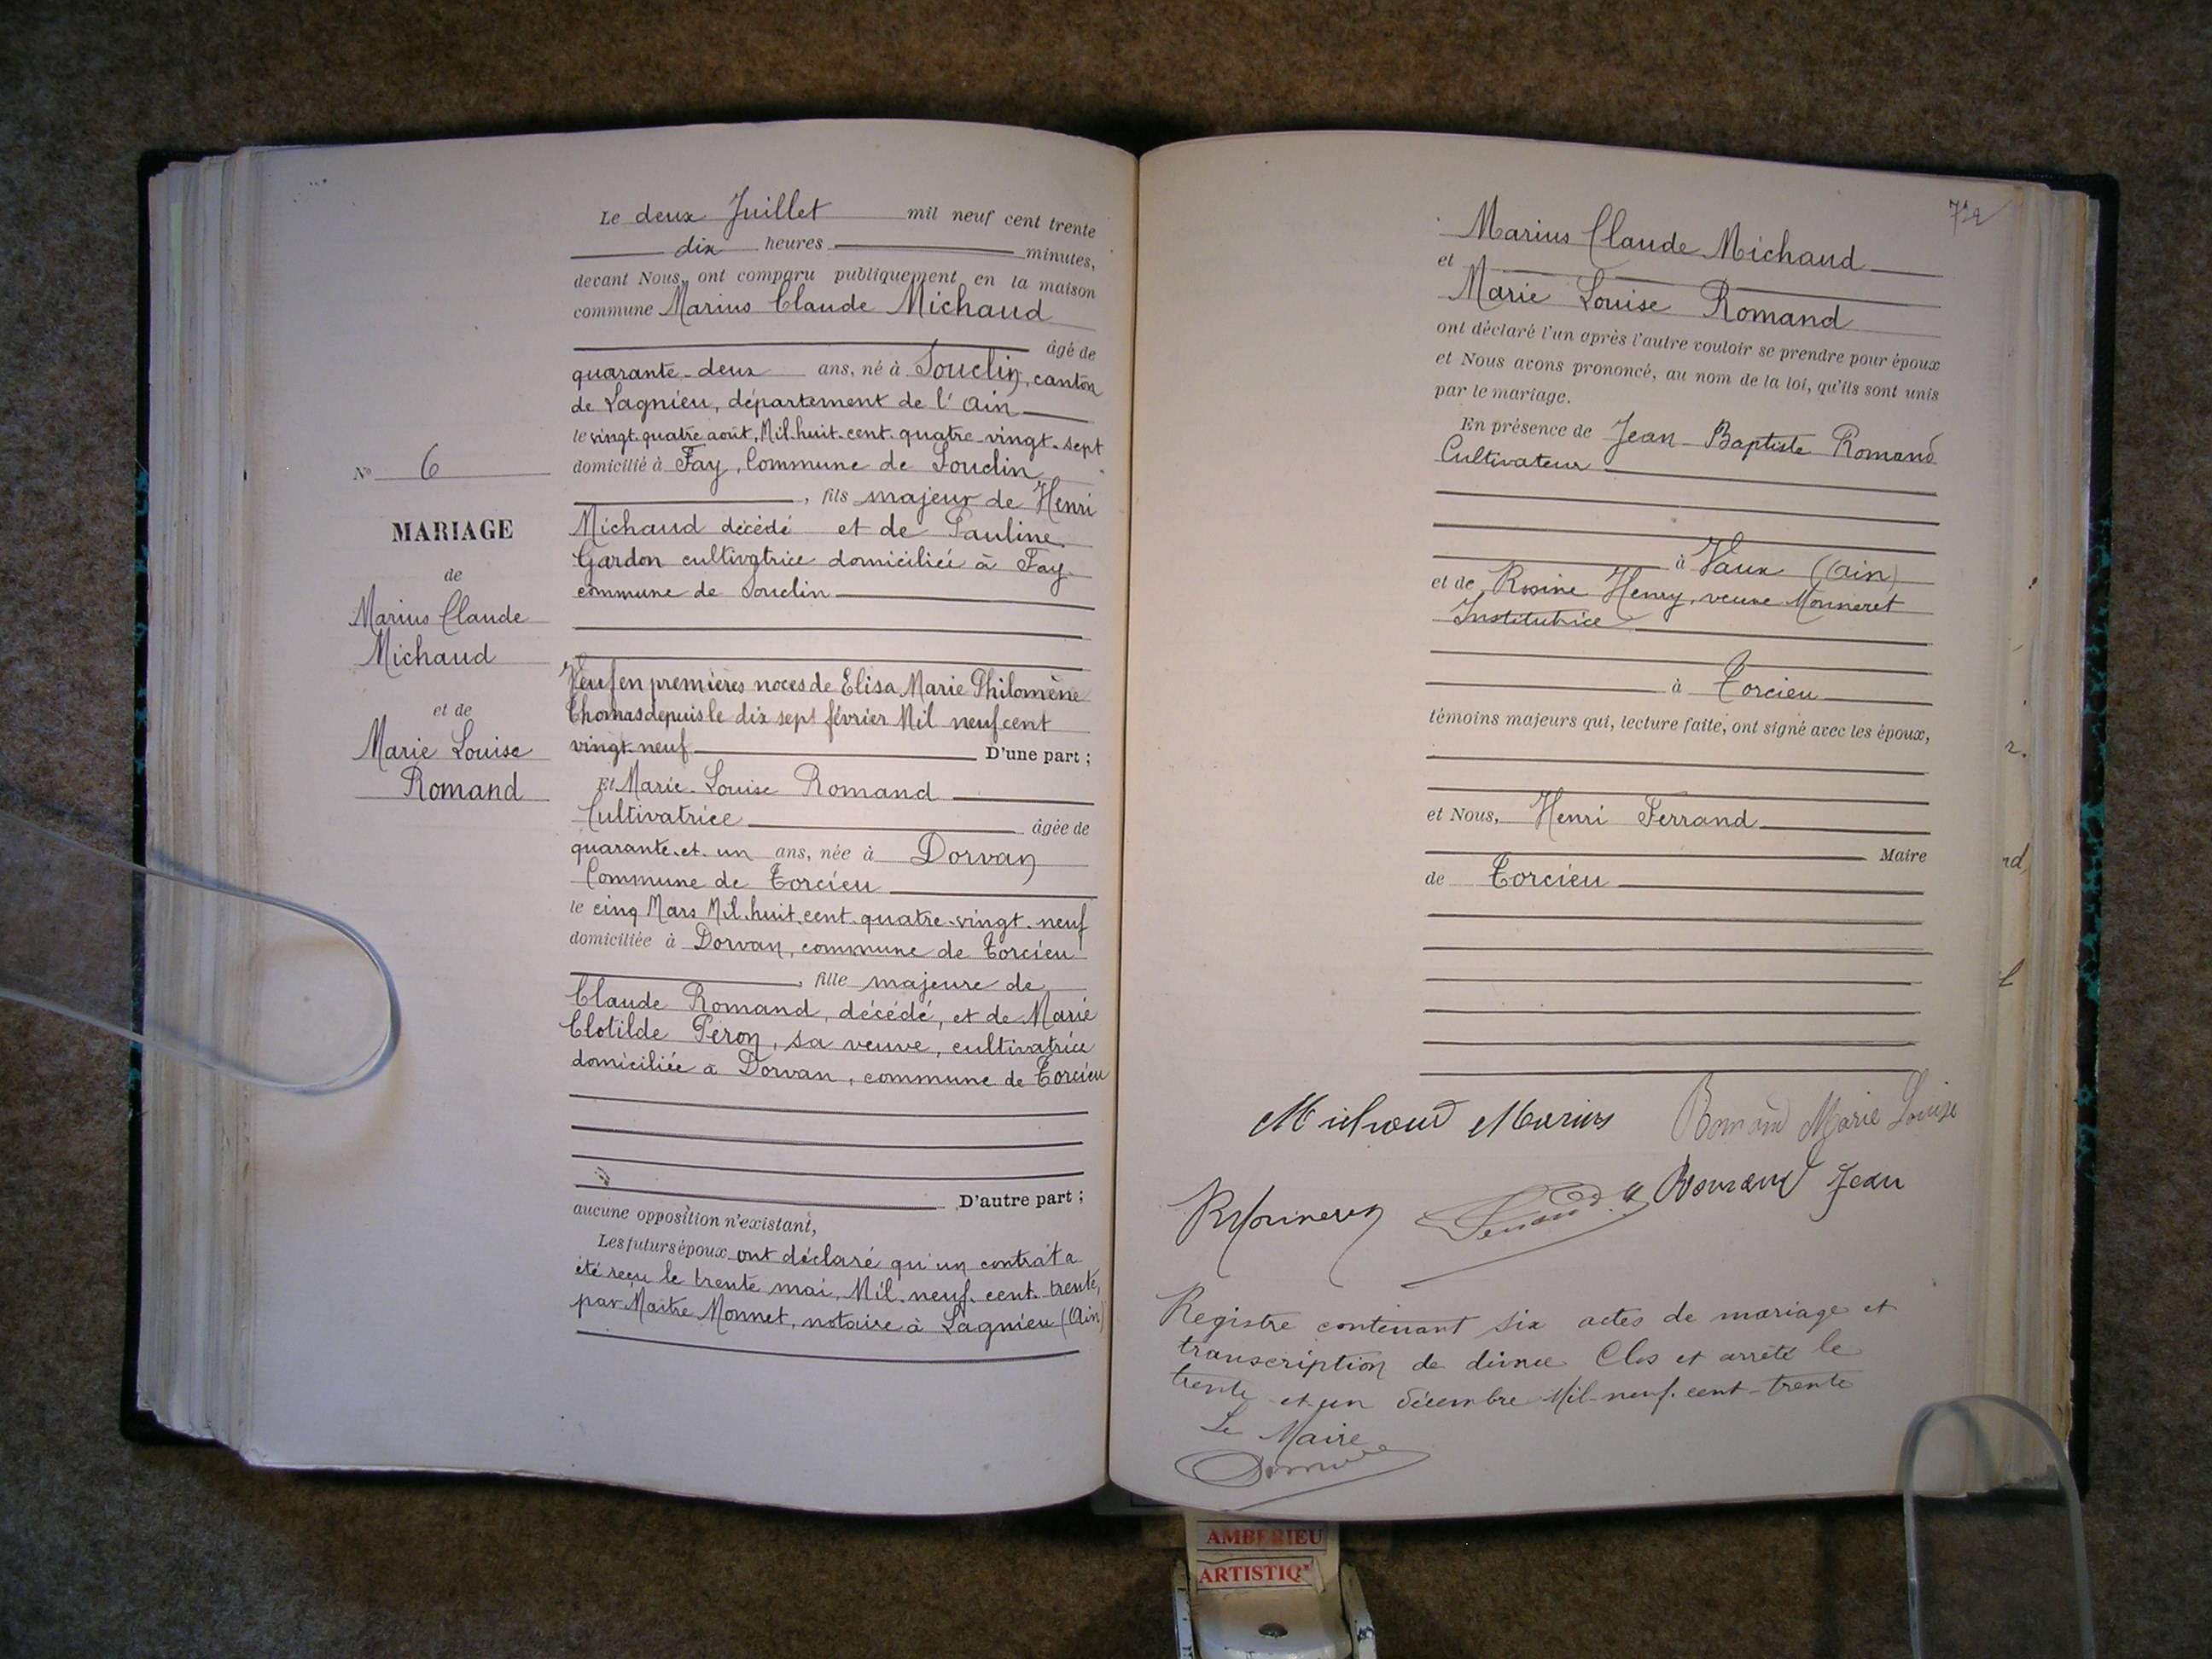 Le deux Juillet mil neuf cent trente
dix heures minutes,
devant Nous, ont comparu publiquement en la maison
commune Marius Claude Michaud
âgé de
quarante-deux ans, né à Souclin, canton
de Lagnieu, département de l'Ain
le vingt-quatre août, Mil-huit-cent-quatre-vingt-sept
domicilié à Fay, Commune de Souclin
, fils majeur de Henri
Michaud décédé et de Pauline
Gardon cultivatrice domiciliée à Fay
commune de Souclin
Veuf en premières noces de Elisa Marie Philomène
Thomas depuis le dix sept février Mil neuf cent
vingt-neuf D'une part ;
Et Marie-Louise Romand
Cultivatrice âgée de
quarante-et-un ans, née à Dorvan
Commune de Torcieu
le cinq Mars Mil-huit-cent-quatre-vingt-neuf
domiciliée à Dorvan, commune de Torcieu
, fille majeure de
Claude Romand, décédé, et de Marie
Clotilde Péron, sa veuve, cultivatrice
domiciliée à Dorvan, commune de Torcieu
D'autre part ;
aucune opposition n'existant,
Les futurs époux ont déclaré qu'un contrat a
été reçu le trente mai, Mil-neuf-cent-trente,
par Maître Monnet, notaire à Lagnieu (Ain)
N° 6
MARIAGE
de
Marius Claude
Michaud
et de
Marie Louise
Romand
Marius Claude Michaud
et
Marie Louise Romand
ont déclaré l'un après l'autre vouloir se prendre pour époux
et Nous avons prononcé, au nom de la loi, qu'ils sont unis
par le mariage.
En présence de Jean-Baptiste Romand
Cultivateur
à Vaux (Ain)
et de Rosine Henry, veuve Monneret
Institutrice
à Torcieu
témoins majeurs qui, lecture faite, ont signé avec les époux,
et Nous, Henri Ferrand
Maire
de Torcieu
Michaud Marius Romand Marie Louise
RMonneret Ferrand H Romand Jean
Registre contenant six actes de mariage et
transcription de divorce Clos et arrêté le
trente-et-un décembre Mil-neuf-cent-trente
Le Maire
AMBERIEU
ARTISTIQ